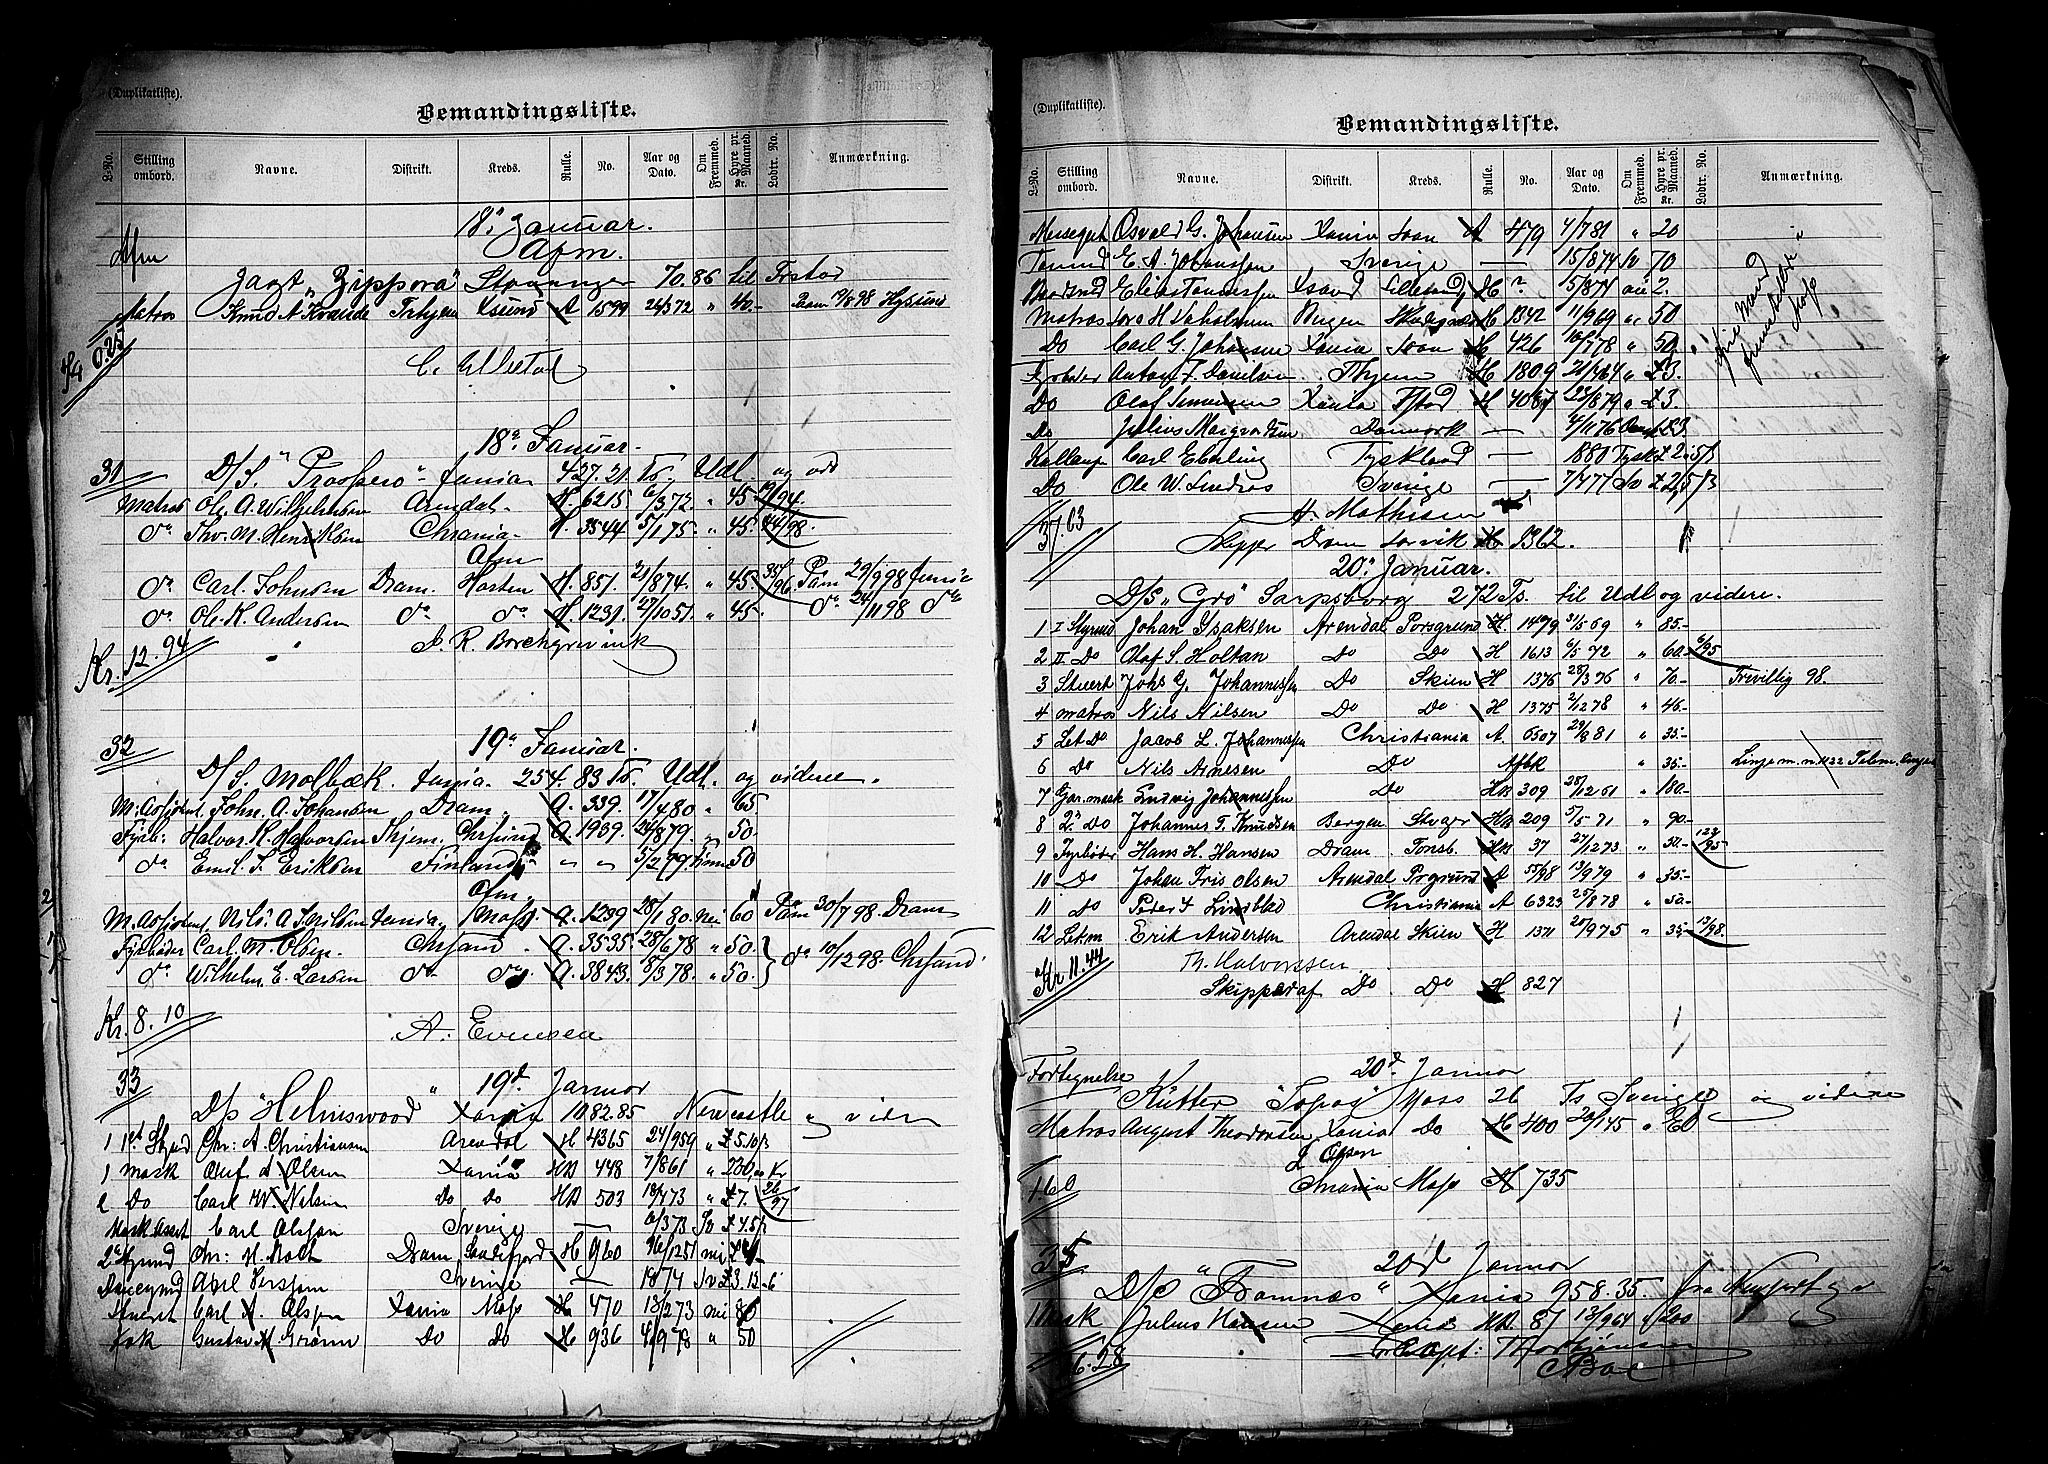 (Duplikatliste).
Bemandingsliste.
L-No. Stilling ombord. Navne. Distrikt. Kreds. Rulle. No. Aar og Dato. Om Fremmed. Hyre pr. Maaned. Kr. Lodtr. No. Anmærkning.
18de Januar.
Afm Afm.
Jagt "Zippora" Stavanger 70.86 til Frstad
Matros Knud A Kvande Trhjem Xsund A 1599 24/3 72 " 40.-
0.25
C. Ullestad
18de Januar.
31 D/S. "Prospero" Xania 427.21 Ts. Udl og vdr
Matros Ole. A. Wilhelmsen Arendal. H. 6215 6/3 72. " 45. 19/94
do Thv. M. Henriksen Chrania. H. 3544 5/1 75. " 45. 44/98.
Afm
do Carl. Johnsen Dram. Horten H. 851. 21/8 74. " 45. 35/96 Paam 29/9 98 Xania
do Ole. K. Andersen do do H. 1231. 27/10 51. " 45. do 24/11 98 do
Kr. 12.94
" R. Borchgrevink
32 19de Januar.
D/S. Molbæk. Xania. 254.83 Ts. Udl. og videre.
M. Assistent. John. A. Johansen Dram, A. 339. 17/4 80 " 65
Fyrb: Halvor. H. Halvorsen Thjem, Chrsund A. 1969. 24/8 79. " 50.
do Emil. S. Eriksen Finland " " 5/2 79. 50
Afm,
M. Assistent. Nils. A. Xania, Moss. A. 1239 28/1 80. nei 60 Paam 30/7 98. Dram
Fyrbøder Carl. M. Olsen. Chrsand. A. 3535. 28/6 78 " 50. do 10/12 98. Chrsand.
do Wilhelm. E. Larsen do do A. 3843. 8/3 78. " 50.
Kr. 8.10
A. Evensen
33 19d Januar
D/s "Helmswood" Xania 1082.85 Newcastle og vider
1 1st Styrd Chr: A. Christiansen Arendal H 4365 24/9 59 " £ 5.10/3
1 Mask Oluf A Olsen Xania HA 448 7/8 61 " 200,00 Kr
2 Do Carl W. Nilsen Do Do HA 503 18/4 73 " £ 7. 26/97
Mask Assst Carl Olsson Sverige — 6/3 73 Sv £ 4.5/
2d Styrmd Chr: H. Holt Dram Sandefjord H 960 26/12 51 nei £
Axel Persson Sverige — 1874 Sv £ 3.12-6
Stuert Carl A. Olssen Xania Moss H 470 18/2 73 nei 80
Kok Gustav A. Grønn Do Do H 936 4/9 78 " 50
(Duplikatliste).
Bemandingsliste.
L-No. Stilling ombord. Navne. Distrikt. Kreds. Rulle. No. Aar og Dato. Om Fremmed. Hyre pr. Maaned. Kr. Lodtr. No. Anmærkning.
Messegut Osvald G. Johansen Xania Soon A 479 4/7 81 " 20
Tømmd E. A. Johansson Sverige — 15/8 74 Sv 70
Elias Tønnessen Xsand Lillesand H ? 5/8 74 nei 2.
Matros H Bergen H 1342 11/9 69 " 50
Do Carl G. Johansen Xania Soon H 426 10/7 78 " 50
Fyrbøder Anton F. Danielsen Thjem H 1809 21/7 64 " £3.
Do Olaf Simensen Xania Fstad H 4087 22/8 79 " £3.
Do Julius Danmark — 4/11 76 £3
Carl Eberling Tyskland — 1880 Tysk £ 2.5/
Do Ole W. Sverige — 7/4 77 Sv £ 2,5/3
37.63 H. Mathisen
Skipper Dram H 1362.
20de Januar.
D/S. "Gro" Sarpsborg 272 Ts. til Udl og videre.
1 I Styrmd Johan Isaksen Arendal Porsgrund H 1479 31/5 69 " 85.-
2 II. Do Olaf S. Holtan Do Do H 1613 6/5 72 " 60.- 6/95
3 Stuert Johs G. Johannessen Do Skien H 1376 28/3 76 " 70.- Frivillig 98.
4 Matros Nils Nilsen Do Do H 1375 2/12 78 " 46.-
5 Let Do Jacob L. Johannessen Christiania A. 6507 29/8 81 " 35.-
6 Do Nils Arnesen Do Afbk " 35.- Linje m. n. 1122 Telem.
7 1ste mask Ludvig Johannessen Do HA 309 28/12 61 " 180.-
8 2. Do Johannes T. Knudsen Bergen HA 209 5/5 71 " 90.-
9 Fyrbøder Hans H. Hansen Dram Tonsb. HA 37 24/12 73 " 50.- 124/95
10 Do Johan Fris Olsen Arendal Prgrund A 55/98 13/9 79 " 35.-
11 Do Peder F Lindblad Christiania A 6323 25/8 78 " 50.-
12 Let.m Erik Andersen Arendal Skien H 1371 20/9 75 " 35.- 12/98
Kr 11.44 Th. Halvorssen
Skipper af Do Do H 827
20d Januar
Fortegnelse Kutter "Topas" Moss 26 Ts Sverige og videre
Matros August Theodorsen Xania Do H 400 20/1 45 " 60
L Olsen
1.60 Chrania Moss H 735
35 20d Januar
D/s " " Xania 958.35. fra Newport og v
Mask Julius Hansen Xania HA 87 13/9 64 " 200
16.28 Capt: Thorbjørnsen